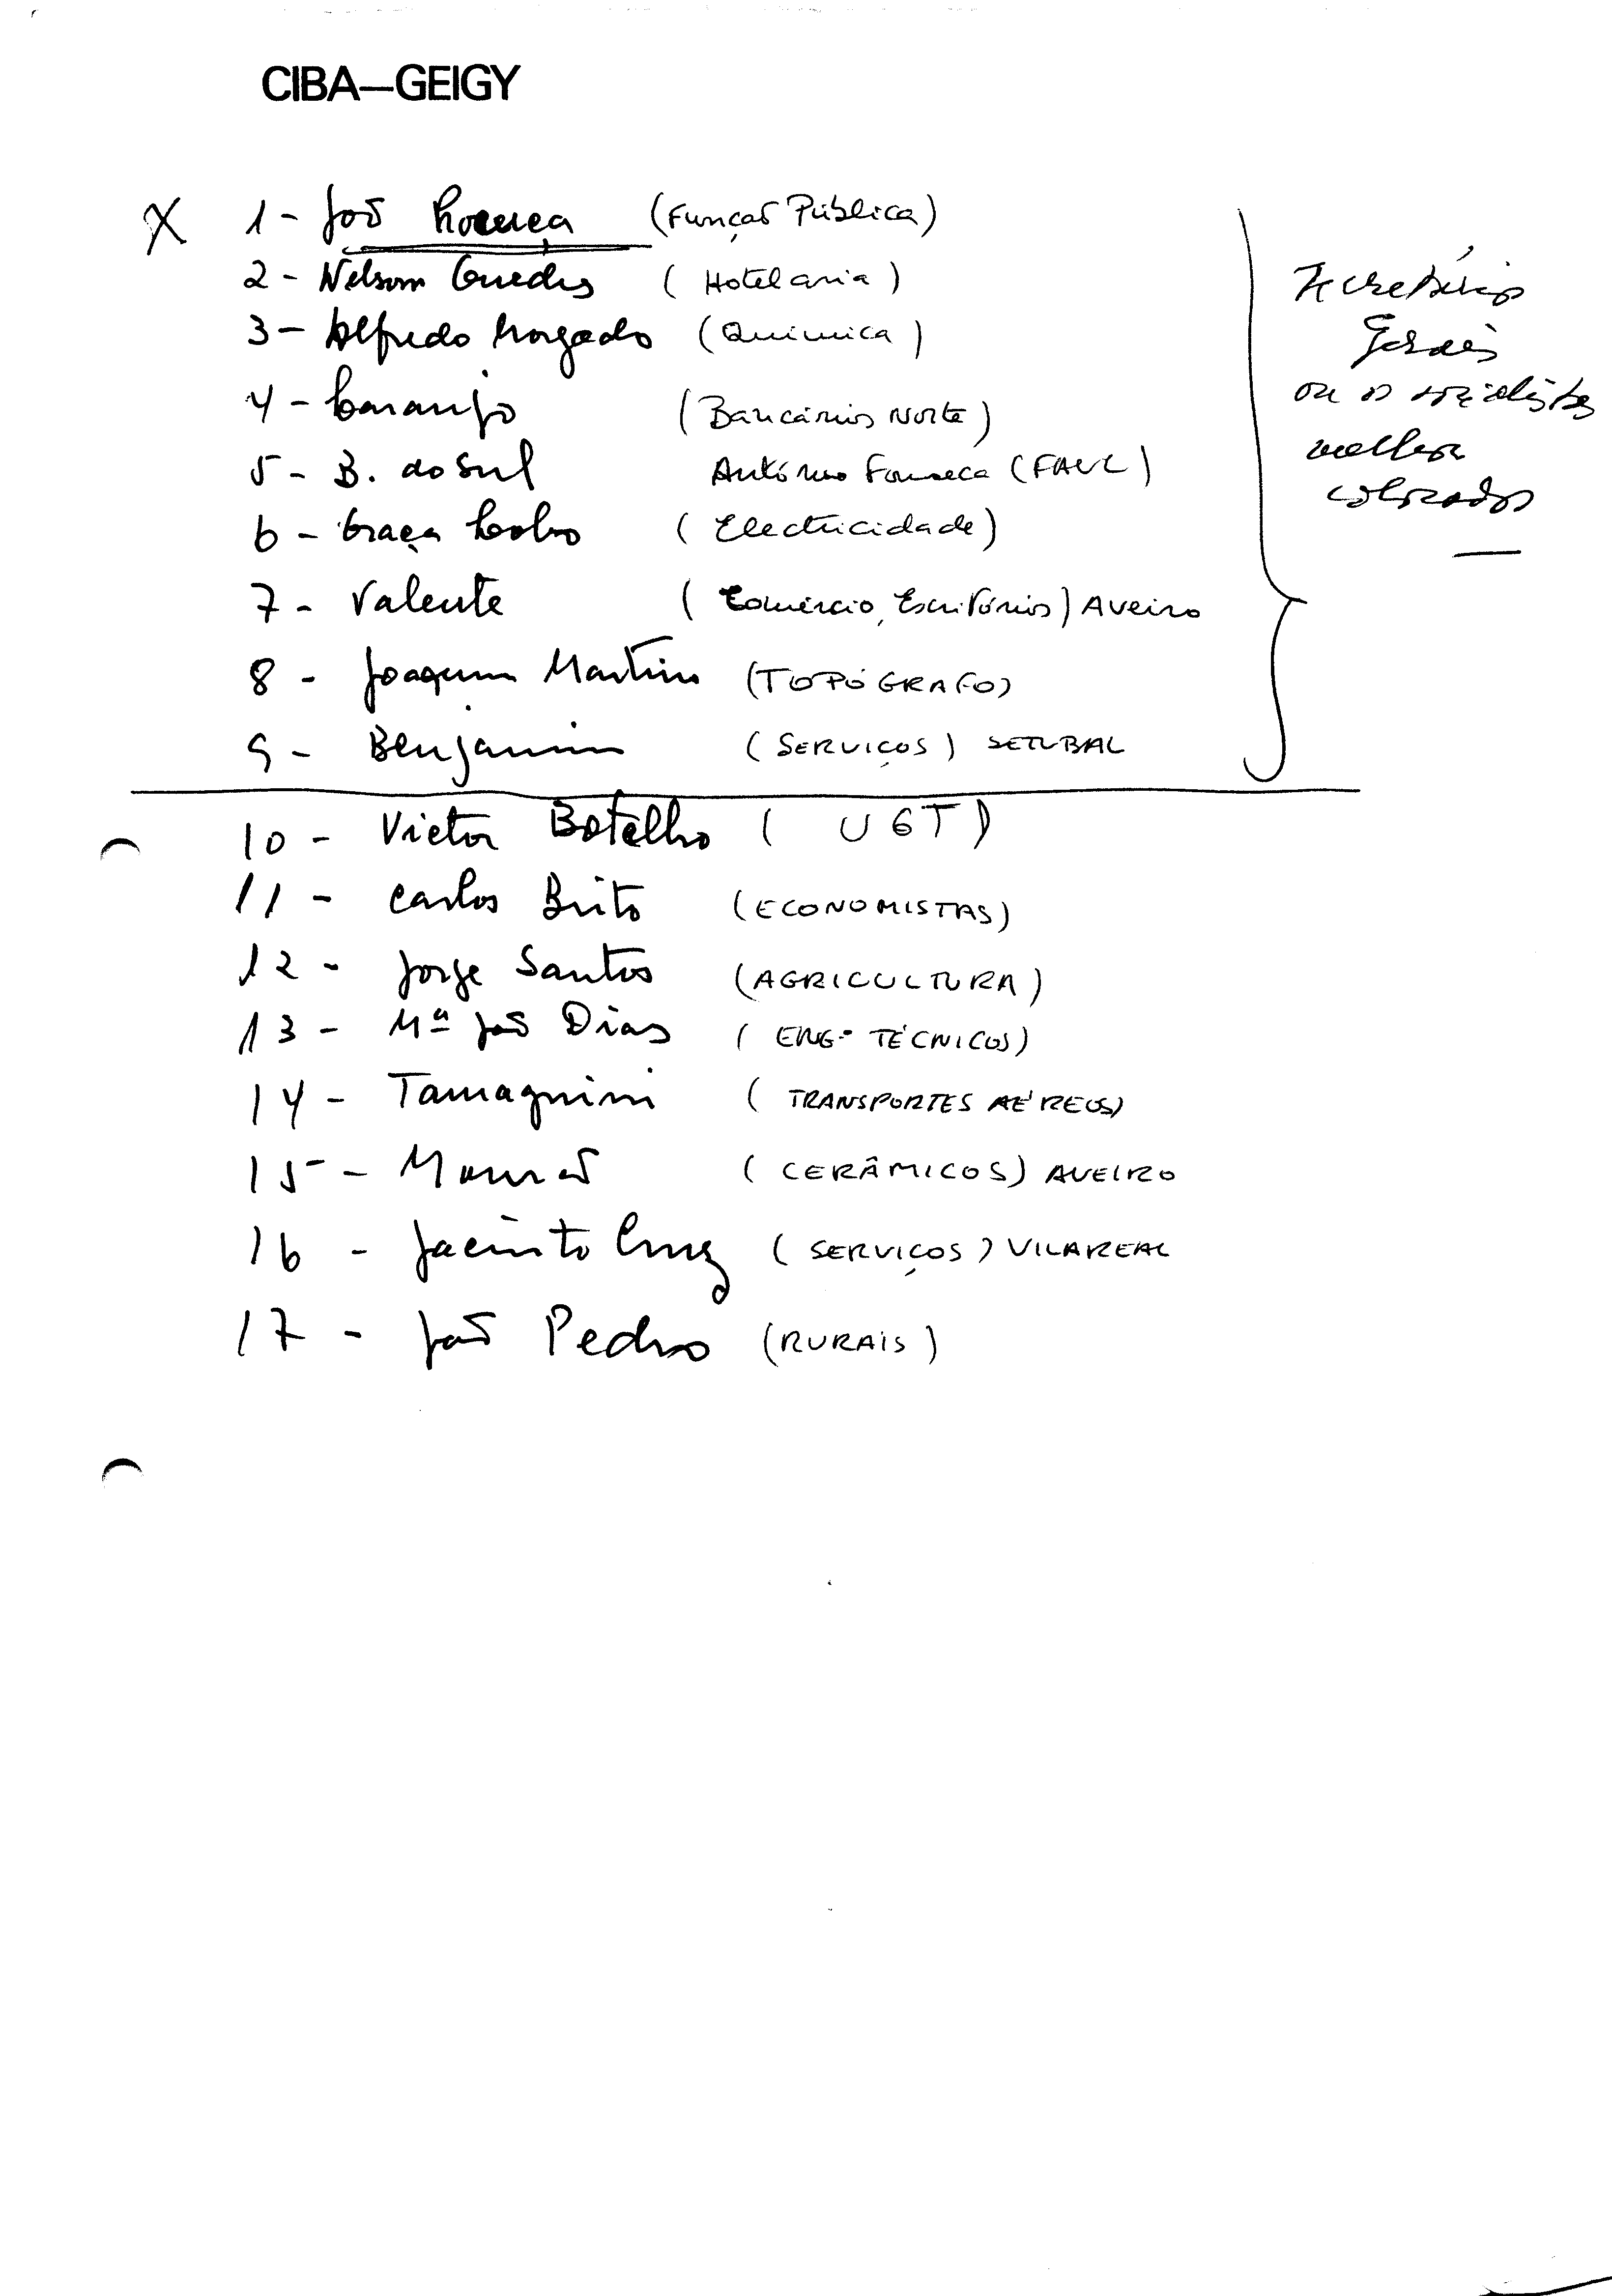 CIBA—GEIGY
X 1 - João (Função Pública)
2 - Nelson Guedes (Hotelaria)
3 - Alfredo Morgado (Química)
4 - (Bancários Norte)
5 - B. do Sul António Fonseca (FAUL)
6 - Graça (Electricidade)
7 - Valente (Comércio, Escritórios) Aveiro
8 - Joaquim Martins (TOPÓGRAFO)
9 - Benjamim (SERVIÇOS) SETUBAL
Secretários
Gerais
ou os socialistas
melhor
colocados
10 - Victor Botelho (UGT)
11 - Carlos Brito (ECONOMISTAS)
12 - Jorge Santos (AGRICULTURA)
13 - Mª João Dias (ENG. TÉCNICOS)
14 - Tamagnini (TRANSPORTES AÉREOS)
15 - Mourão (CERÂMICOS) AVEIRO
16 - Jacinto Cruz (SERVIÇOS) VILA REAL
17 - João Pedro (RURAIS)